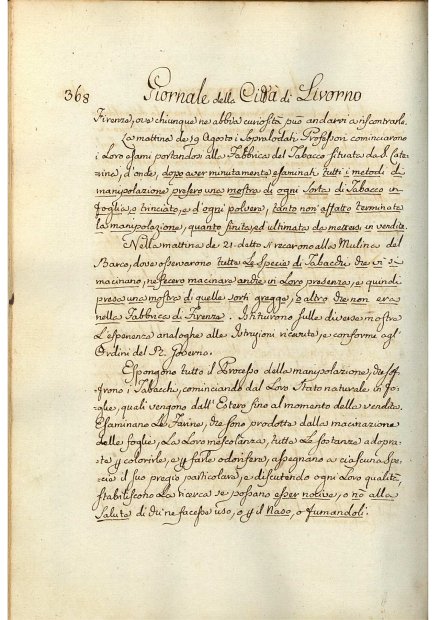 368 Giornale della Città di Livorno
Firenze, ove chiunque ne abbia curiosità può andarvi a riscontrarle.
La mattina de 19 Agosto i Sopralodati Professori cominciarono
i Loro esami portandosi alla Fabbrica del Tabacco situata da S. Cate-
rina, d'onde, dopo aver minutamente esaminati tutti i metodi di
manipolazione presero una mostra di ogni sorta di Tabacco in
foglia, o trinciato, e d'ogni polvere, tanto non affatto terminata
la manipolazione, quanto finita, ed ultimata da mettersi in vendita.
Nella mattina de 21. detto si recarono alla Mulina del
Barco, dove osservarono tutte Le Specie di Tabacchi che vi si
macinano, ne fecero macinare anche in Loro presenza, e quindi
presa una mostra di quelle sorti gregge, e altro che non era
nella Fabbrica di Firenze. Istituirono sulle diverse mostre
L'esperienze analoghe alle Istruzioni ricevute, e conformi agl'
Ordini del R. Governo.
Espongono tutto il Processo della manipolazione, che sof-
frono i Tabacchi, cominciando dal Loro Stato naturale in fo-
glie, quali vengono dall'Estero fino al momento della vendita.
Esaminano Le Farine, che sono prodotte dalla macinazione
delle foglie, La Loro mescolanza, tutte Le sostanze adopra-
te p colorirle, e p farle odorifere, assegnano a ciascuna Spe-
cie il suo pregio particolare, e discutendo ogni Loro qualità,
stabiliscono La ricerca se possano esser nocive, o no alla
Salute di chi ne facesse uso, o p il Naso, o fumandoli.